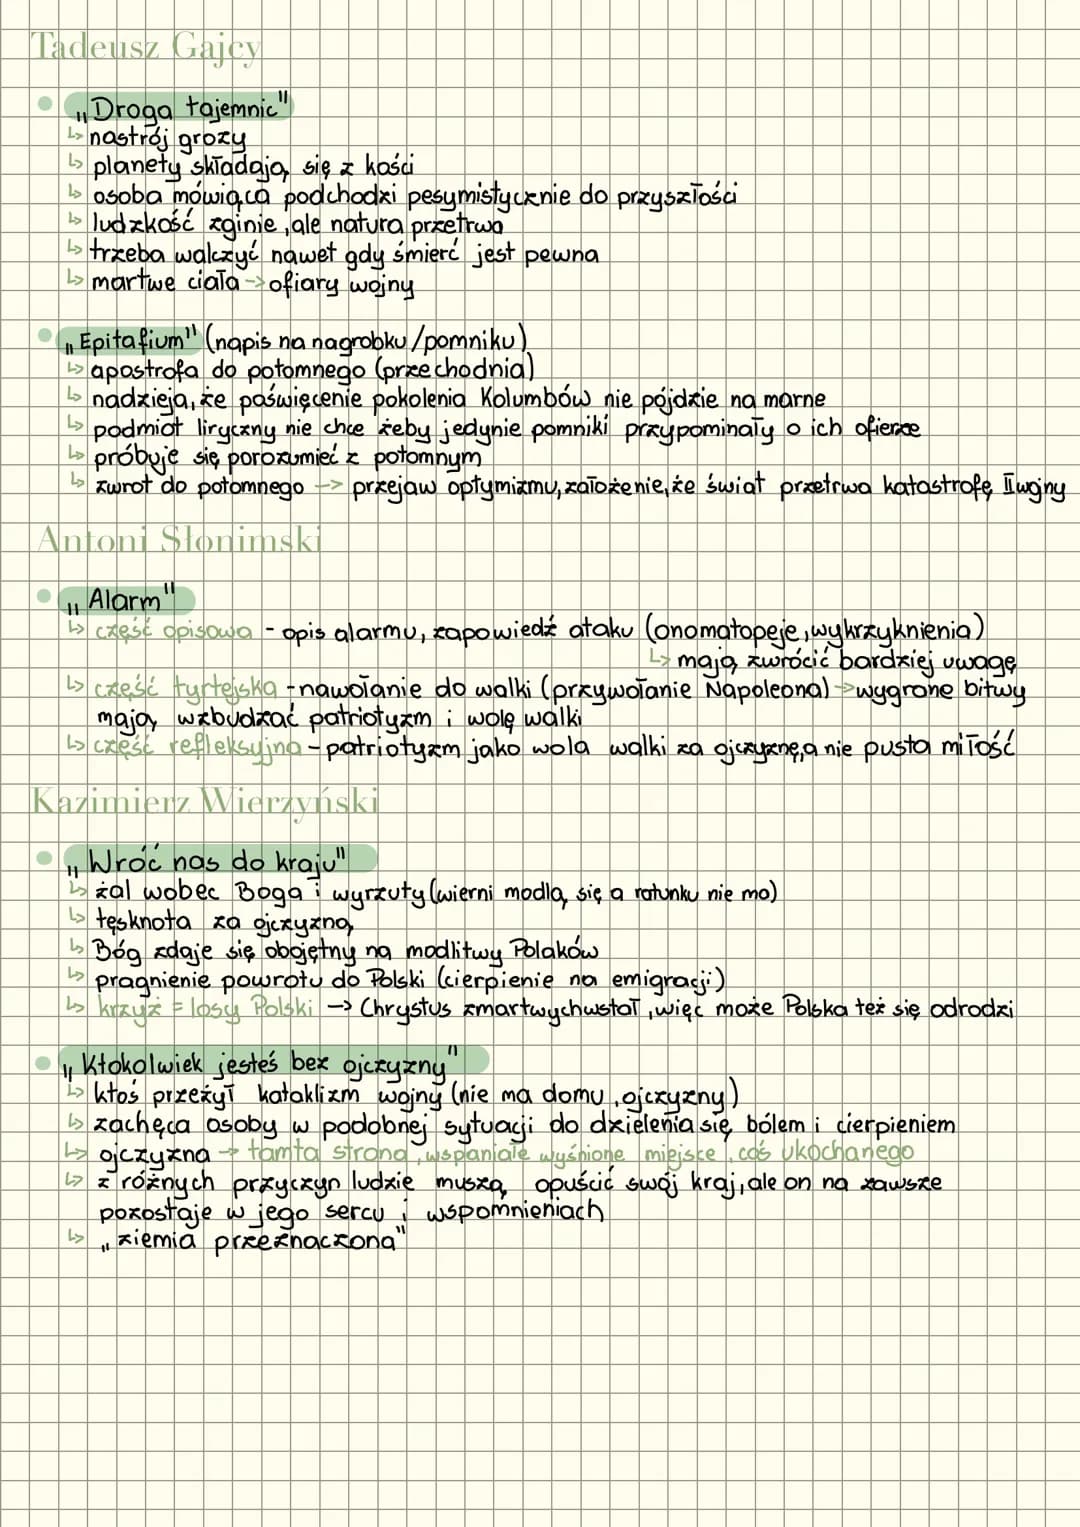 Tadeusz Gajcy
• „Droga tajemnic"
↳ nastrój grozy
↳ planety składają się z kości
↳ osoba mówiąca podchodzi pesymistycznie do przyszłości
↳ ludzkość zginie, ale natura przetrwa
↳ trzeba walczyć nawet gdy śmierć jest pewna
↳ martwe ciała -> ofiary wojny
• „Epitafium" (napis na nagrobku/pomniku)
↳ apostrofa do potomnego (przechodnia)
↳ nadzieja, że poświęcenie pokolenia Kolumbów nie pójdzie na marne
↳ podmiot liryczny nie chce żeby jedynie pomniki przypominały o ich ofierze
↳ próbuje się porozumieć z potomnym
↳ zwrot do potomnego -> przejaw optymizmu, założenie, że świat przetrwa katastrofę II wojny
Antoni Słonimski
• „Alarm"
↳ część opisowa - opis alarmu, zapowiedź ataku (onomatopeje, wykrzyknienia)
↳ mają zwrócić bardziej uwagę
↳ część tyrtejska - nawołanie do walki (przywołanie Napoleona) -> wygrane bitwy
mają wzbudzać patriotyzm i wolę walki
↳ część refleksyjna - patriotyzm jako wola walki za ojczyznę, a nie pusta miłość
Kazimierz Wierzyński
• „Wróć nas do kraju"
↳ żal wobec Boga i wyrzuty (wierni modlą się a ratunku nie ma)
↳ tęsknota za ojczyzną
↳ Bóg zdaje się obojętny na modlitwy Polaków
↳ pragnienie powrotu do Polski (cierpienie na emigracji)
↳ krzyż = losy Polski -> Chrystus zmartwychwstał, więc może Polska też się odrodzi
• „Ktokolwiek jesteś bez ojczyzny"
↳ ktoś przeżył kataklizm wojny (nie ma domu, ojczyzny)
↳ zachęca osoby w podobnej sytuacji do dzielenia się bólem i cierpieniem
↳ ojczyzna -> tamta strona, wspaniałe wyśnione miejsce, coś ukochanego
↳ z różnych przyczyn ludzie muszą opuścić swój kraj, ale on na zawsze
pozostaje w jego sercu i wspomnieniach
↳ „ziemia przeznaczona"